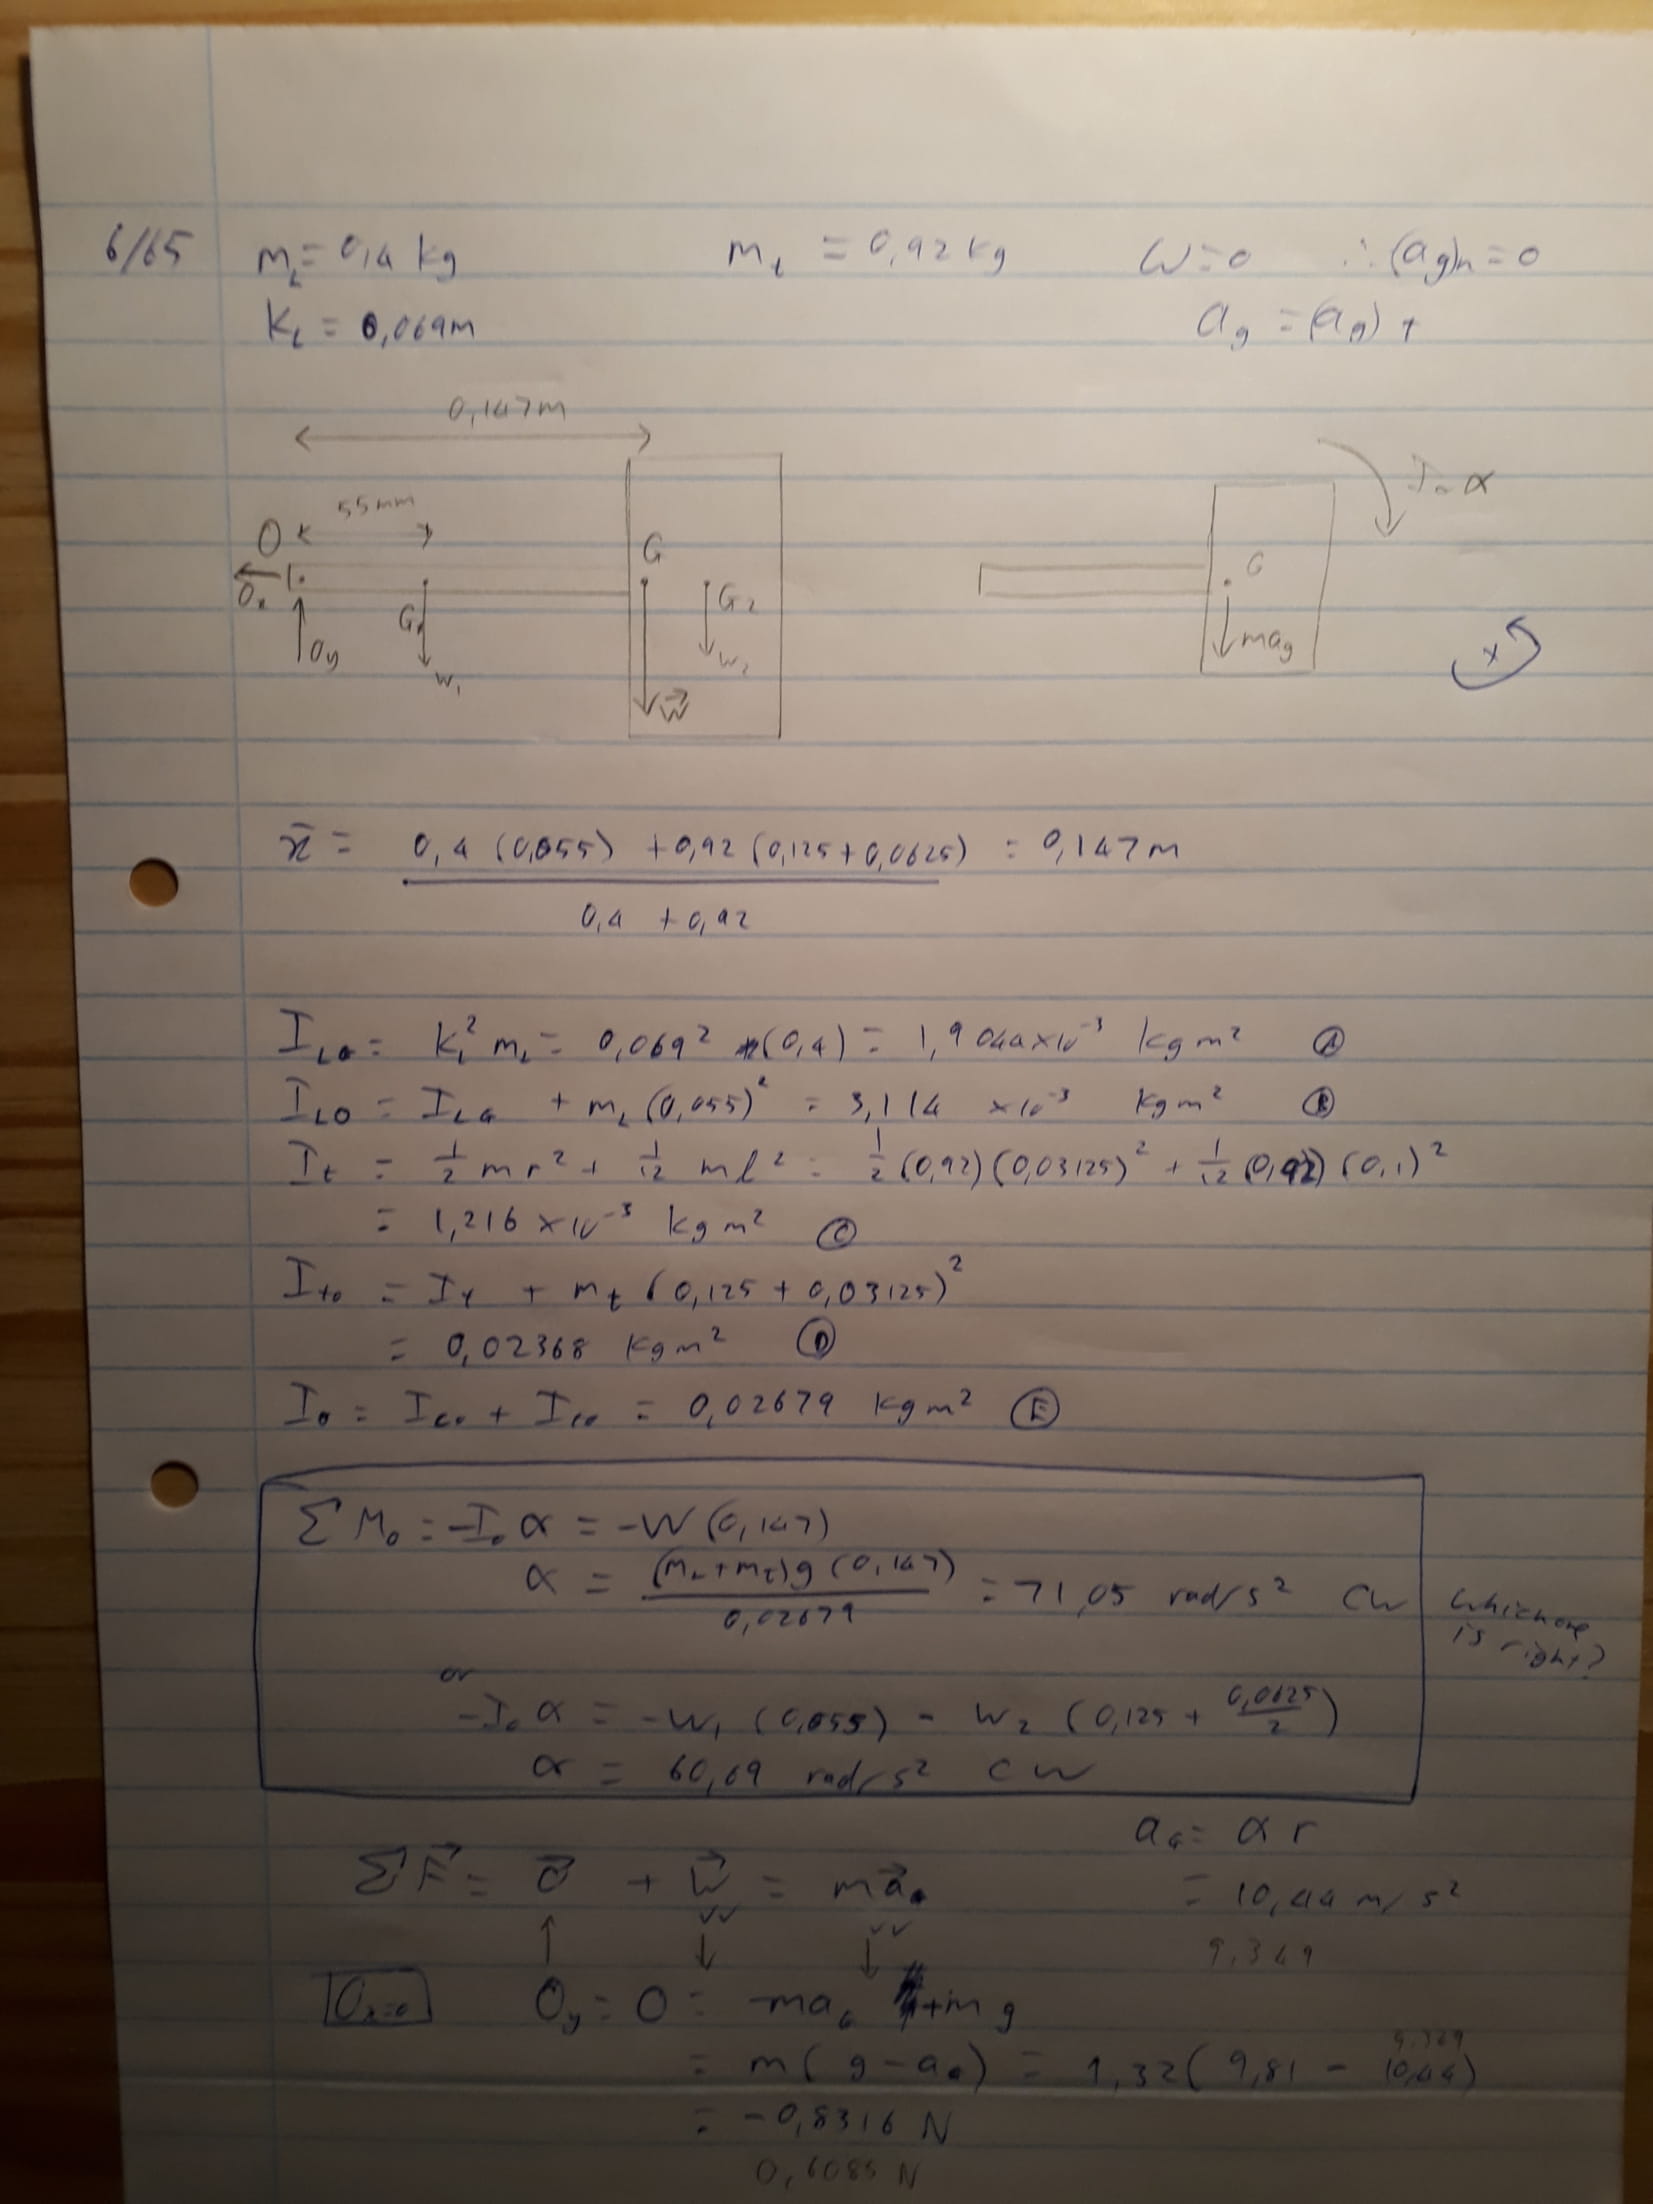 6/65 m_L = 0,4 kg m_t = 0,92 kg ω = 0 ∴ (a_g)n = 0
K_L = 0,069m a_g = (a_g) t
0,147m
55mm
O
O_x
O_y
G_1
W_1
G
W⃗
G_2
W_2
I_o α
G
ma_g
+
x̄ = 0,4 (0,055) + 0,92 (0,125 + 0,0625) / 0,4 + 0,92 = 0,147m
I_LG = K_L² m_L = 0,069² (0,4) = 1,9044 x10⁻³ kg m² Ⓐ
I_LO = I_LG + m_L (0,055)² = 3,114 x10⁻³ kg m² Ⓑ
I_t = 1/2 m r² + 1/12 m l² = 1/2 (0,92) (0,03125)² + 1/12 (0,92) (0,1)²
= 1,216 x 10⁻³ kg m² Ⓒ
I_to = I_t + m_t (0,125 + 0,03125)²
= 0,02368 kg m² Ⓓ
I_o = I_Lo + I_to = 0,02679 kg m² Ⓔ
ΣM_o = -I_o α = -W (0,147)
α = (m_L + m_t) g (0,147) / 0,02679 = 71,05 rad/s² CW which one is right?
or
-I_o α = -W_1 (0,055) - W_2 (0,125 + 0,0625/2)
α = 60,69 rad/s² CW
a_G = α r
ΣF⃗ = O⃗ + W⃗ = ma⃗_G = 10,44 m/s²
vv vv 9.349
O_x=0 O_y = O = -ma_G + mg
9.349
= m( g - a_G) = 1,32( 9,81 - 10,44)
= -0,8316 N
0,6085 N